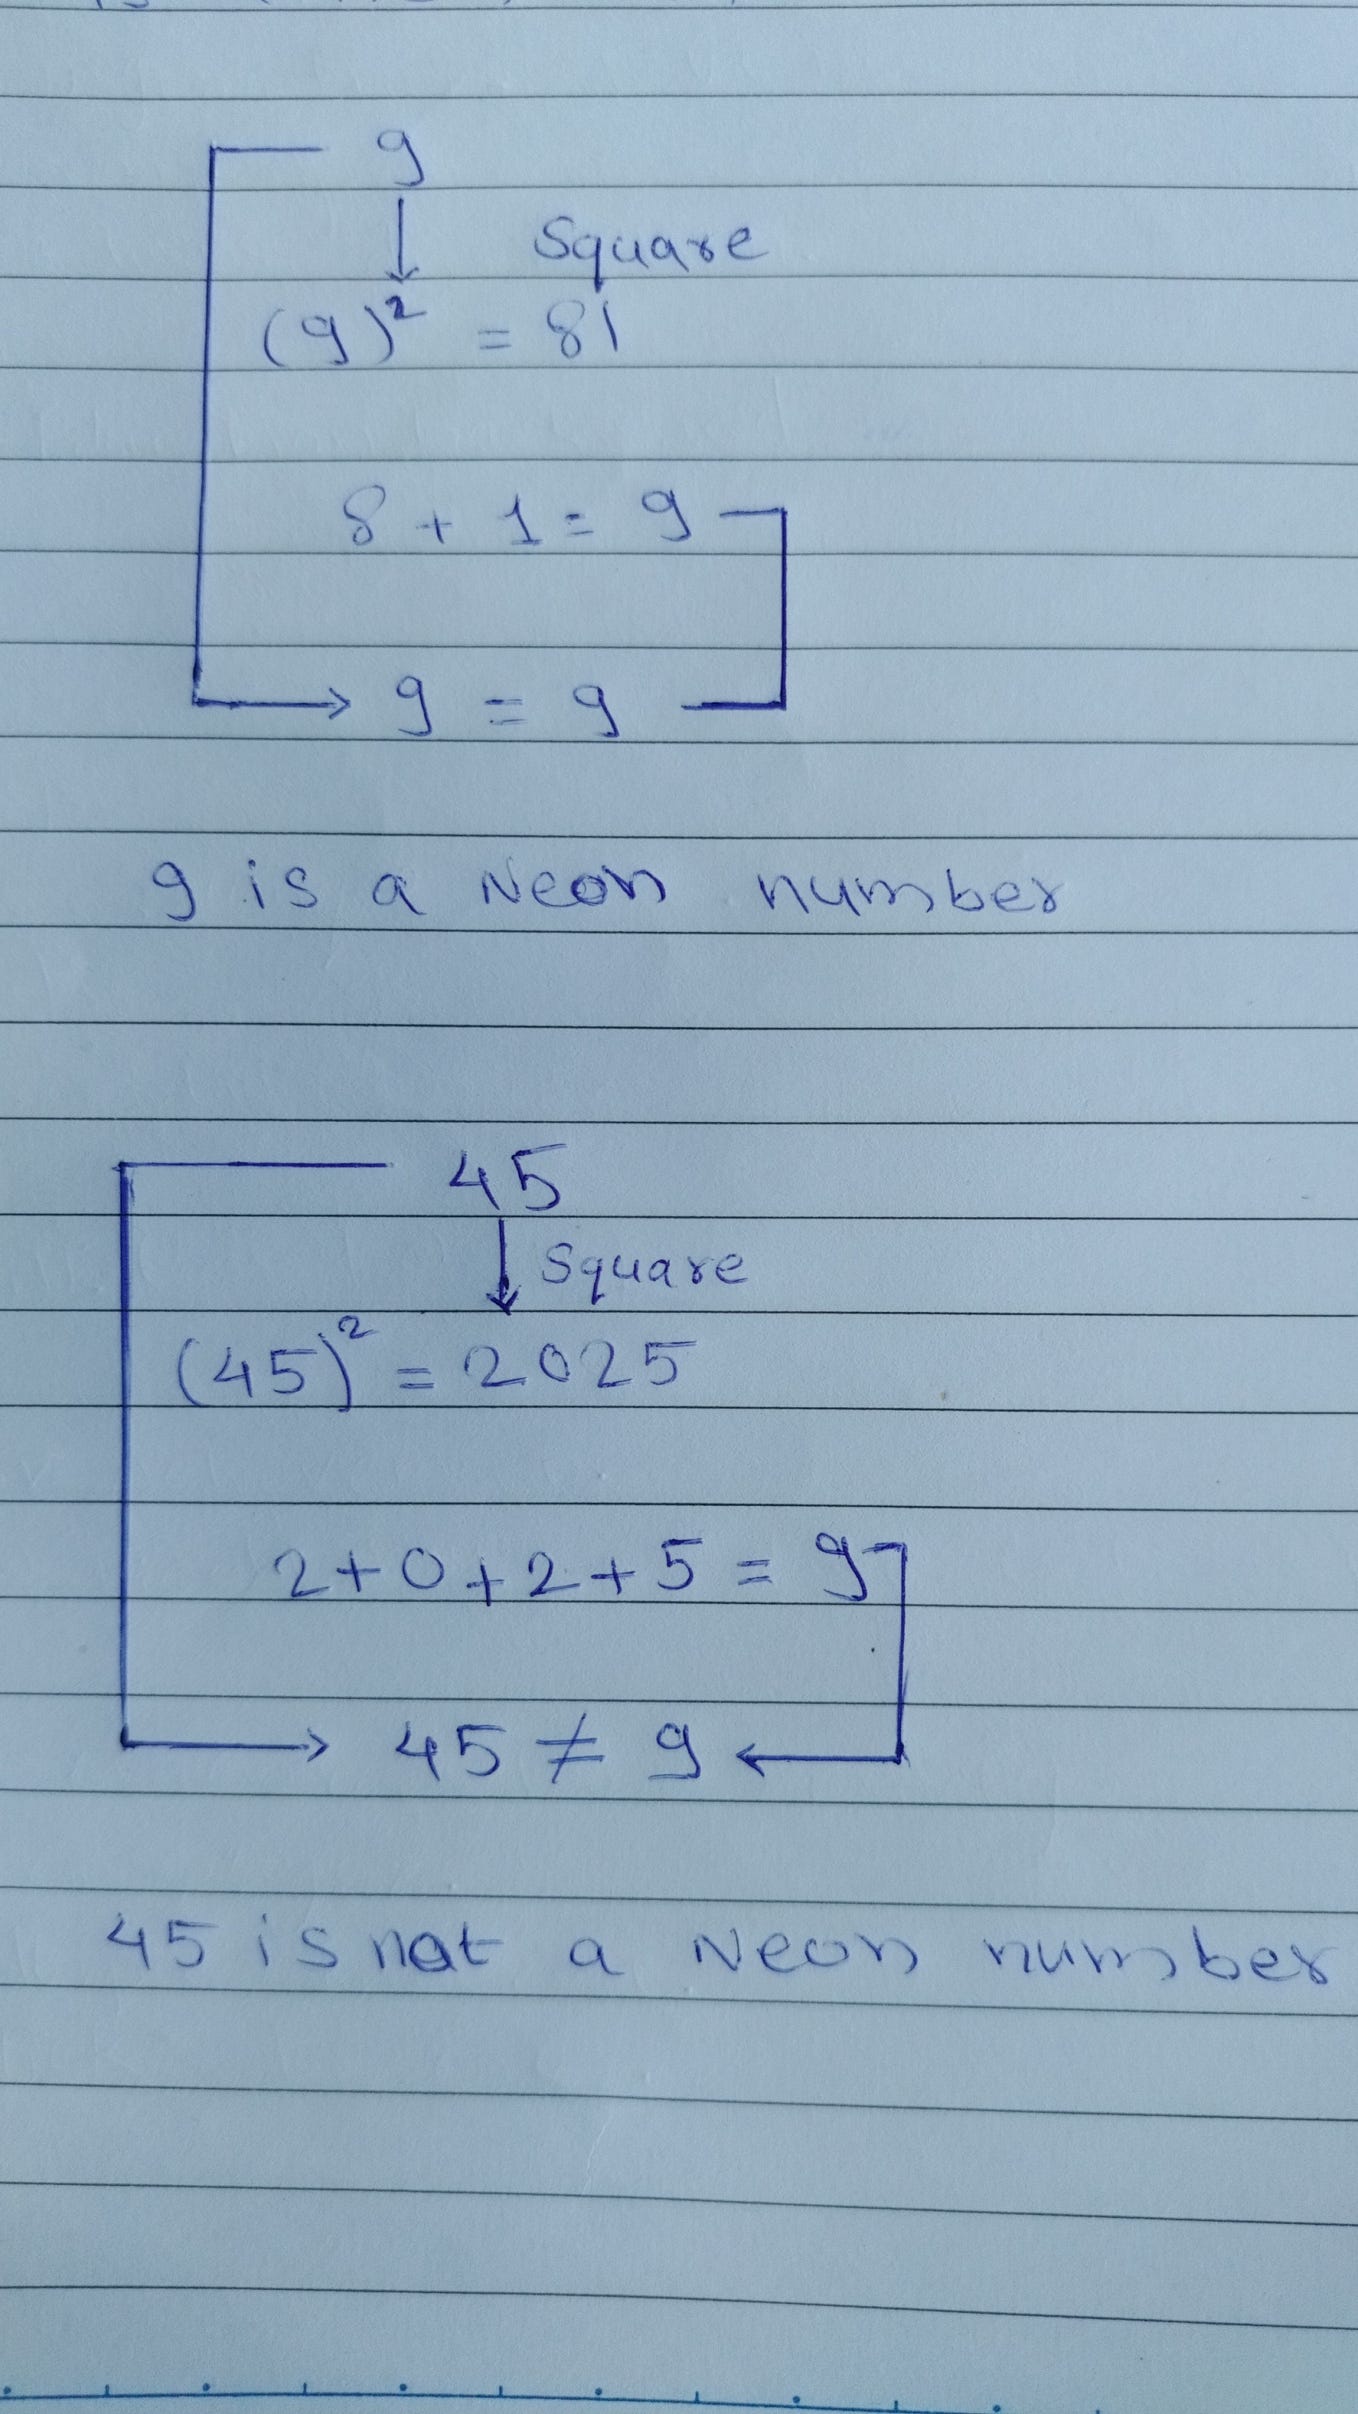 9
Square
(9)² = 81
8 + 1 = 9
9 = 9
9 is a Neon number
45
Square
(45)² = 2025
2+0+2+5 = 9
45 ≠ 9
45 is not a Neon number